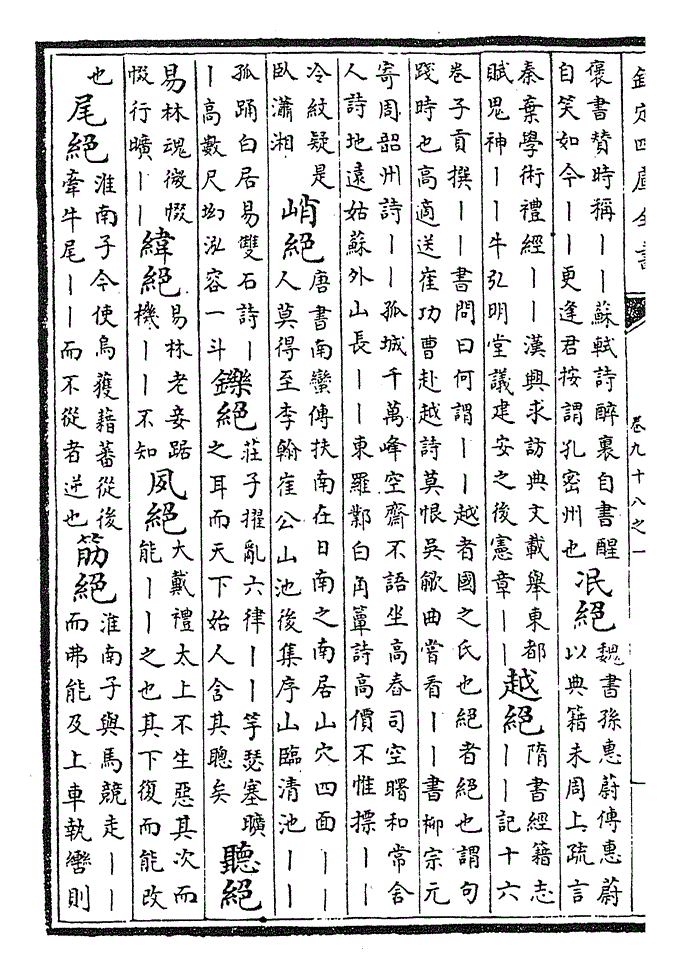 欽定四庫全書
卷九十八之一
褒書贊時稱丨丨蘇軾詩醉裏自書醒
自笑如今丨丨更逢君按謂孔密州也
泯絕
魏書孫惠蔚傳惠蔚
以典籍未周上疏言
秦棄學術禮經丨丨漢興求訪典文載舉東都
賦鬼神丨丨牛弘明堂議建安之後憲章丨丨
越絕
隋書經籍志
丨丨記十六
卷子貢撰丨丨書問曰何謂丨丨越者國之氏也絕者絕也謂句
踐時也高適送崔功曹赴越詩莫恨吳歈曲嘗看丨丨書柳宗元
寄周韶州詩丨丨孤城千萬峰空齋不語坐高舂司空曙和常舍
人詩地遠姑蘇外山長丨丨東羅鄴白角簟詩高價不惟標丨丨
冷紋疑是
臥瀟湘
峭絕
唐書南蠻傳扶南在日南之南居山穴四面丨丨
人莫得至李翰崔公山池後集序山臨清池丨丨
孤踊白居易雙石詩丨
丨高數尺坳泓容一斗
鑠絕
莊子擢亂六律丨丨竽瑟塞曠
之耳而天下始人含其聰矣
聽絕
易林魂微惙
惙行曠丨丨
緯絕
易林老妾踞
機丨丨不知
夙絕
大戴禮太上不生惡其次而
能丨丨之也其下復而能改
也
尾絕
淮南子今使烏獲藉蕃從後
牽牛尾丨丨而不從者逆也
筋絕
淮南子與馬競走丨丨
而弗能及上車執轡則